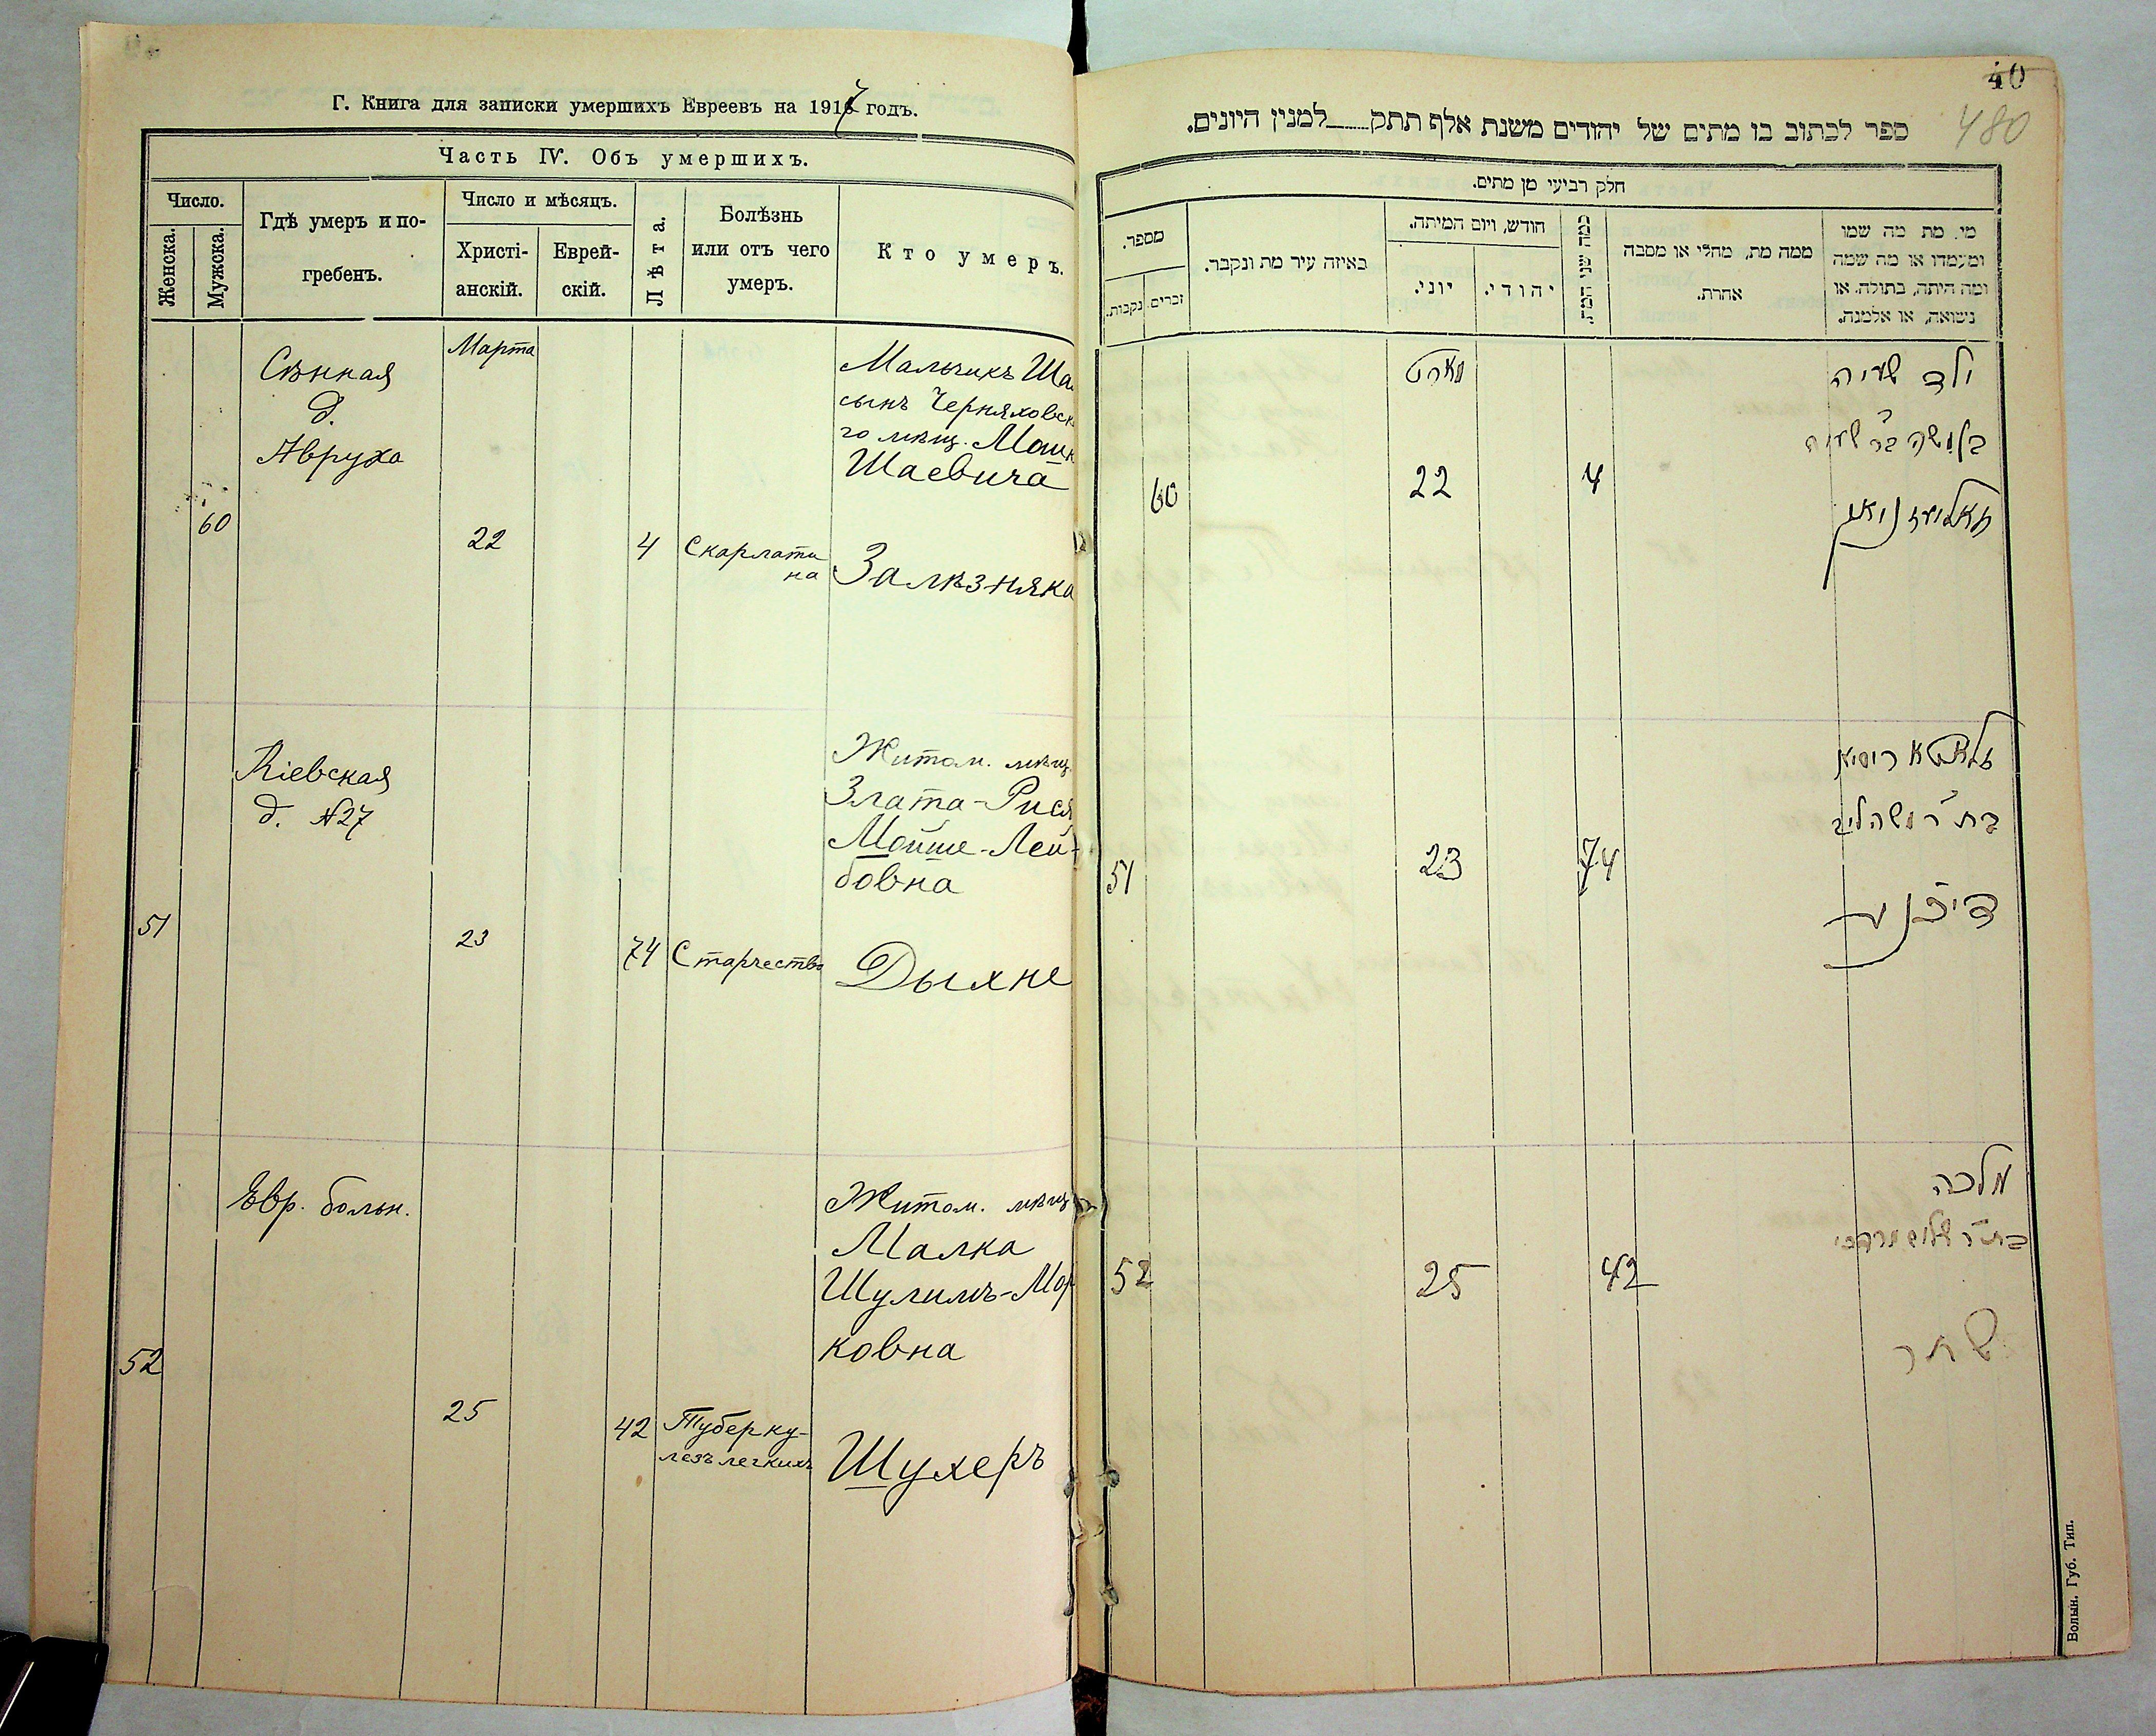 Г. Книга для записки умершихъ Евреевъ на 1917 годъ.
Часть IV. Объ умершихъ.
Число.
Женска.
Мужска.
Гдѣ умеръ и по-
гребенъ.
Число и мѣсяцъ.
Христі-
анскій.
Еврей-
скій.
Лѣта.
Болѣзнь
или отъ чего
умеръ.
Кто умеръ.
Сѣнная
д.
Авруха
Марта
60
22
4
Скарлати
на
Мальчикъ Ша
сынъ Черняховск
го мѣщ. Мошк
Шаевича
Залѣзняка
Кіевская
д. №27
51
23
74
Старчество
Житом. мѣщ.
Злата-Рися
Мойше-Лей-
бовна
Дыхне
Евр. больн.
52
25
42
Туберку-
лезъ легкихъ
Житом. мѣщ
Малка
Шулимъ-Мор
ковна
Шухеръ
40
480
ספר לכתוב בו מתים של יהודים משנת אלף תתק למנין היונים.
חלק רביעי מן מתים.
מספר.
זכרים
נקבות.
באיזה עיר מת ונקבר.
חודש, ויום המיתה.
יוני.
יהודי.
כמה שני המת.
ממה מת, מחלי או מסבה
אחרת.
מי. מת מה שמו
ומעמדו או מה שמה
ומה היתה, בתולה. או
נשואה, או אלמנה.
מארט
60
22
4
ילד שעיה
במשה בר שעיה
51
23
74
זלאטא ריסיא
בת ר משה ליב
דיכנע
52
25
42
מלכה
בת ר שלום מרדכי
שחר
Волын. Губ. Тип.